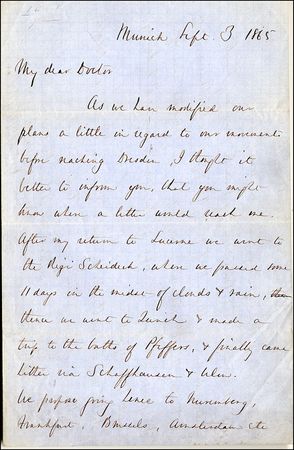 Munich Sept. 3 1865
My dear Doctor
As we have modified our
plans a little in regard to our movements
before reaching Dresden, I thought it
better to inform you, that you might
know where a letter would reach me.
After my return to Lucerne we went
to the Rigi Scheideck, where we passed some
11 days in the midst of clouds & rain,
thence we went to Zurich & made a
trip to the baths of Pfeffers, & finally came
hither via Schaffhausen & Ulm.
We propose going hence to Nuremberg,
Frankfurt, Brussels, Amsterdam etc